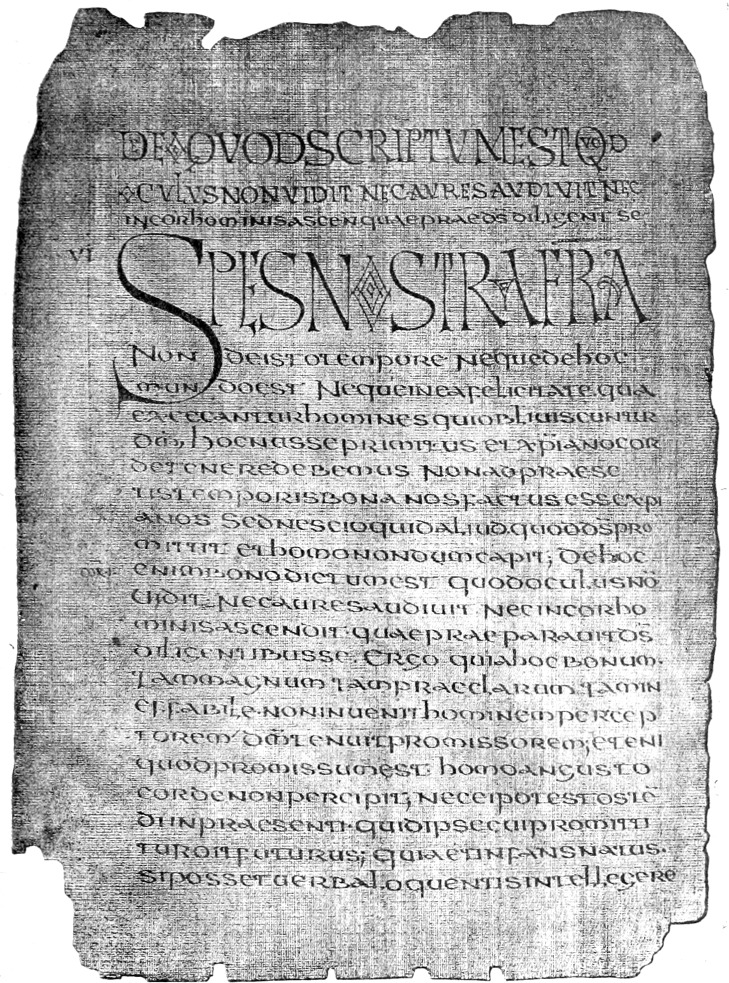 DE EO QVOD SCRIPTVM EST QVOD
OCVLVS NON VIDIT NEC AVRES AVDIVIT NEC
IN COR hOMINIS ASCEN QUAE PRAE DS DILIGENT SE
VI
SPES NOSTRA FRA
NON DE ISTO TEMPORE NEQUE DE hOC
MUNDO EST NEQUE IN EA FELICITATE QUA
EXCECANTUR hOMINES QUI OBLIUISCUNTUR
DM, hOC NUSSE PRIMITUS ET XPIANO COR
DE TENERE DEBEMUS NON AD PRAESE
TIS TEMPORIS BONA NOS FACTUS ESSE XPI
ANOS SED NESCIO QUID ALIUD QUOD DS PRO
MITTIT ET hOMO NONDUM CAPIT; DE hOC
ENIM BONO DICTUM EST QUOD OCULUS NO
UIDIT NEC AURES AUDIUIT NEC IN COR hO
MINIS ASCENDIT QUAE PRAEPARAUIT DS
DILIGENTIBUS SE. ERGO QUIA hOC BONUM.
TAM MAGNUM TAM PRAECLARUM TAM IN
EFFABILE NON INUENIT hOMINEM PERCEP
TOREM DM TENUIT PROMISSOREM; ETENI
QUOD PROMISSUM EST hOMO ANGUSTO
CORDE NON PERCIPIT; NEC EI POTEST OSTE
DI IN PRAESENTI QUID IPSE CUI PROMITTI
TUR OIT FUTURUS; QUIA ET INFANS NATUS.
SI POSSET UERBA LOQUENTIS INTELLEGERE